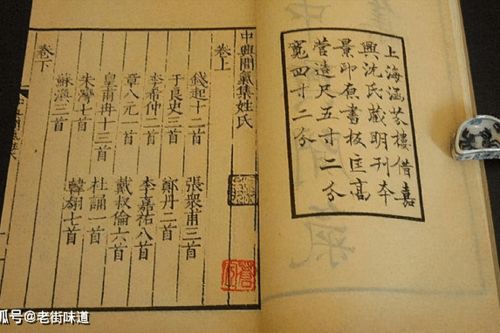 上海涵芬樓借嘉
興沈氏藏明刊本
景印原書板匡高
營造尺五寸二分
寬四寸二分
中興閒氣集姓氏
卷上
錢起十二首 張衆甫三首
于良史三首 鄭丹二首
李希仲二首 李嘉祐八首
章八元一首 戴叔倫六首
皇甫冉十三首 杜誦一首
朱灣七首 韓翃七首
蘇渙三首
卷下
狐号@老街味道